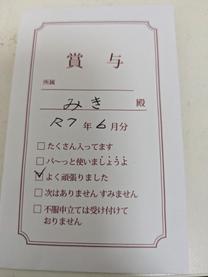 賞与
所属
みき 殿
R7年6月分
□たくさん入ってます
□パ〜っと使いましょうよ
☑よく頑張りました
□次はありません すみません
□不服申立ては受け付けて
おりません